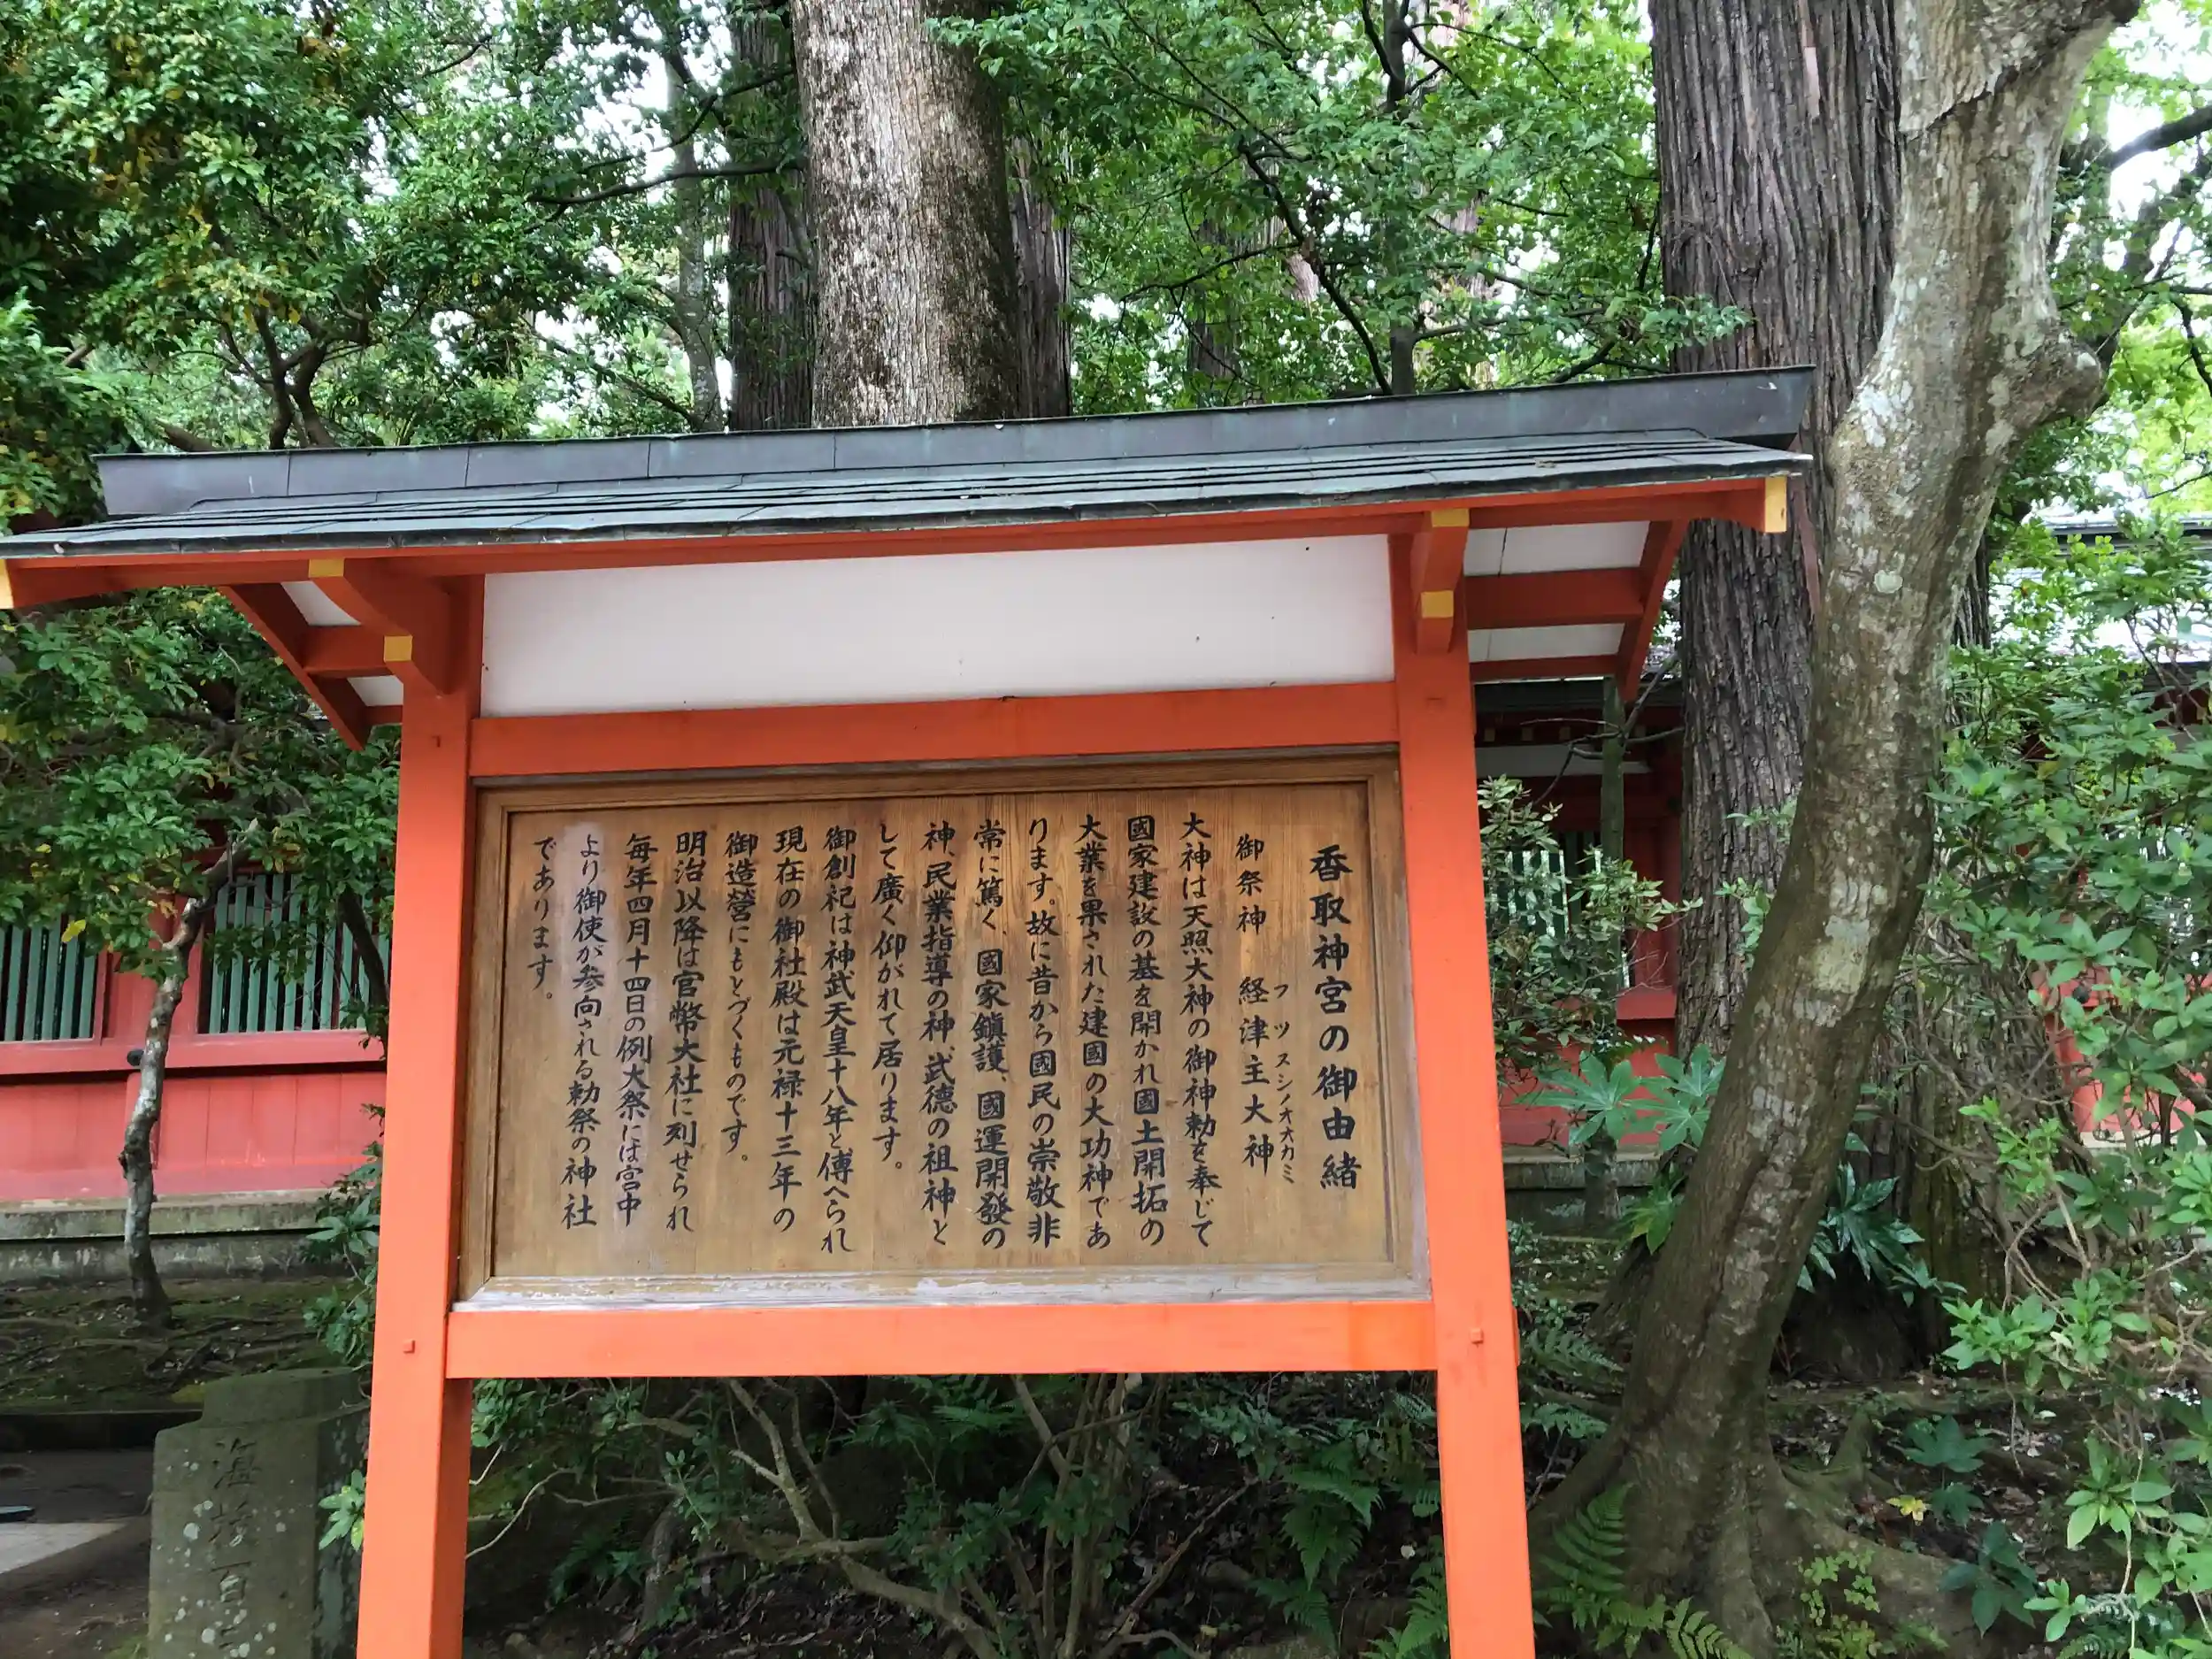 香取神宮の御由緒
御祭神 経津主大神
フツヌシノオオカミ
大神は天照大神の御神勅を奉じて
國家建設の基を開かれ國土開拓の
大業を果された建國の大功神であ
ります。故に昔から國民の崇敬非
常に篤く、國家鎮護、國運開發の
神、民業指導の神、武徳の祖神と
して廣く仰がれて居ります。
御創祀は神武天皇十八年と傳へられ
現在の御社殿は元禄十三年の
御造営にもとづくものです。
明治以降は官幣大社に列せられ
毎年四月十四日の例大祭には宮中
より御使が参向される勅祭の神社
であります。